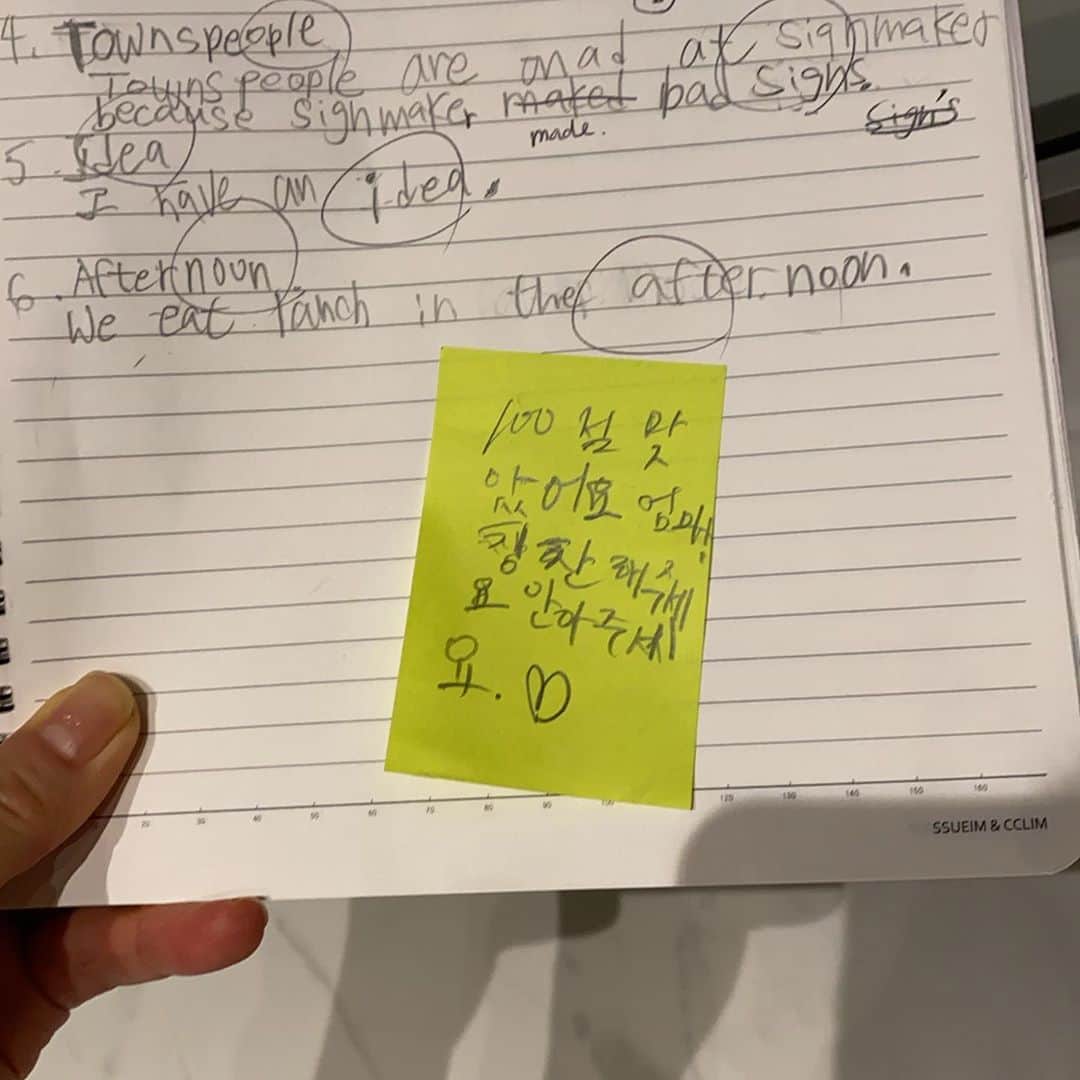 4. Townspeople
Townspeople are mad at sighmaker
because sighmaker maked bad sighs.
made. sigh's
5. Idea
I have an idea.
6. Afternoon
We eat lanch in the afternoon.
100점 맞
았어요 엄마!
칭찬해주세
요 안아주세
요.
20 30 40 50 60 70 80 90 100 120 130 140 150 160
SSUEIM & CCLIM